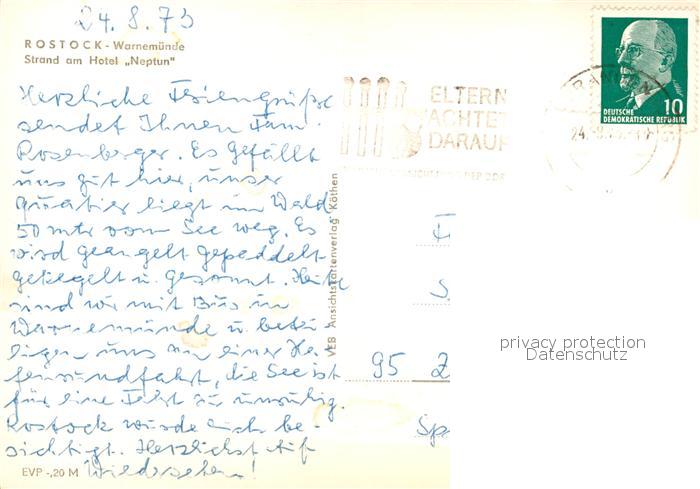 24.8.73
ROSTOCK - Warnemünde
Strand am Hotel „Neptun"
Herzliche Feriengrüße
sendet Ihnen Fam.
Rosenberger. Es gefällt
uns gut hier, unser
Quatier liegt im Wald
50 mtr vom See weg. Es
wird geangelt gepaddelt
gekegelt u. gesonnt. Heute
sind wir mit Bus in
Warnemünde u. betei-
ligen uns an einer Ha-
fenrundfahrt, die See ist
für eine Fahrt zu unruhig.
Rostock wurde auch be-
sichtigt. Herzlichst Auf
Wiedersehen!
EVP -,20 M
VEB Ansichtskartenverlag Köthen
ELTERN
ACHTET
DARAUF
DEUTSCHE
DEMOKRATISCHE REPUBLIK
10
95 Z
Sp
privacy protection
Datenschutz